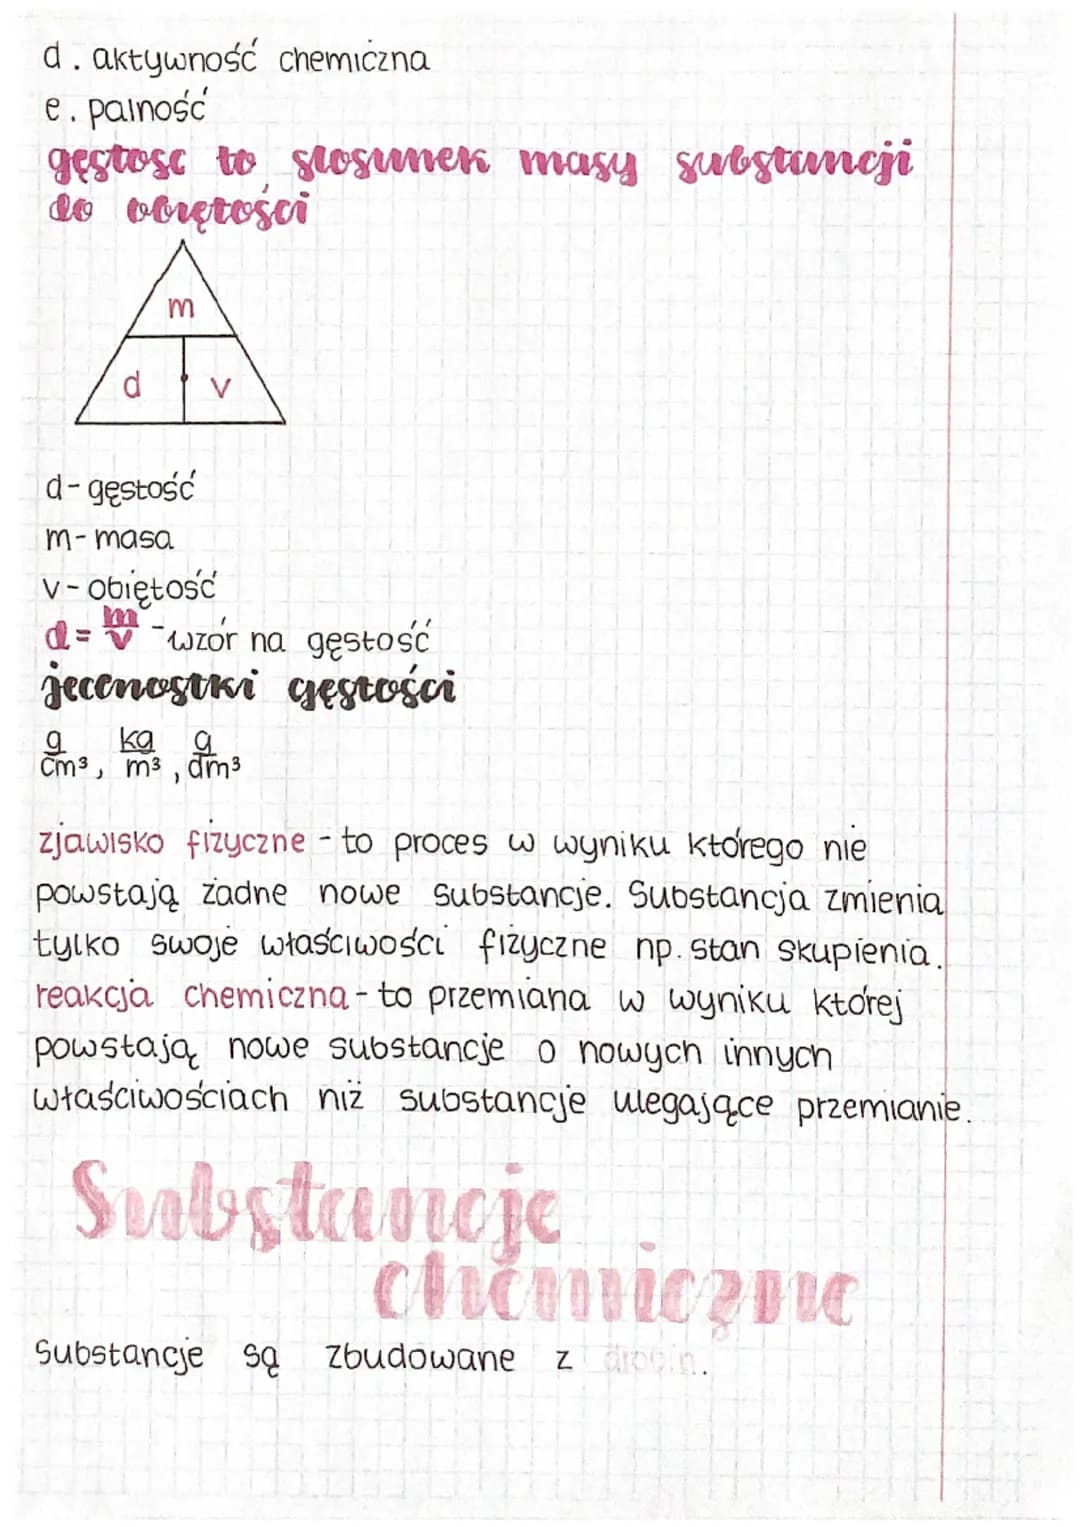 d. aktywność chemiczna
e. palność
gęstość to stosunek masy substancji
do obiętości
m
d
v
d - gęstość
m - masa
v - obiętość
d = m/v - wzór na gęstość
jednostki gęstości
g/cm³, kg/m³, g/dm³
zjawisko fizyczne - to proces w wyniku którego nie
powstają żadne nowe substancje. Substancja zmienia
tylko swoje właściwości fizyczne np. stan skupienia.
reakcja chemiczna - to przemiana w wyniku której
powstają nowe substancje o nowych innych
właściwościach niż substancje ulegające przemianie.
Substancje
chemiczne
Substancje są zbudowane z drobin.